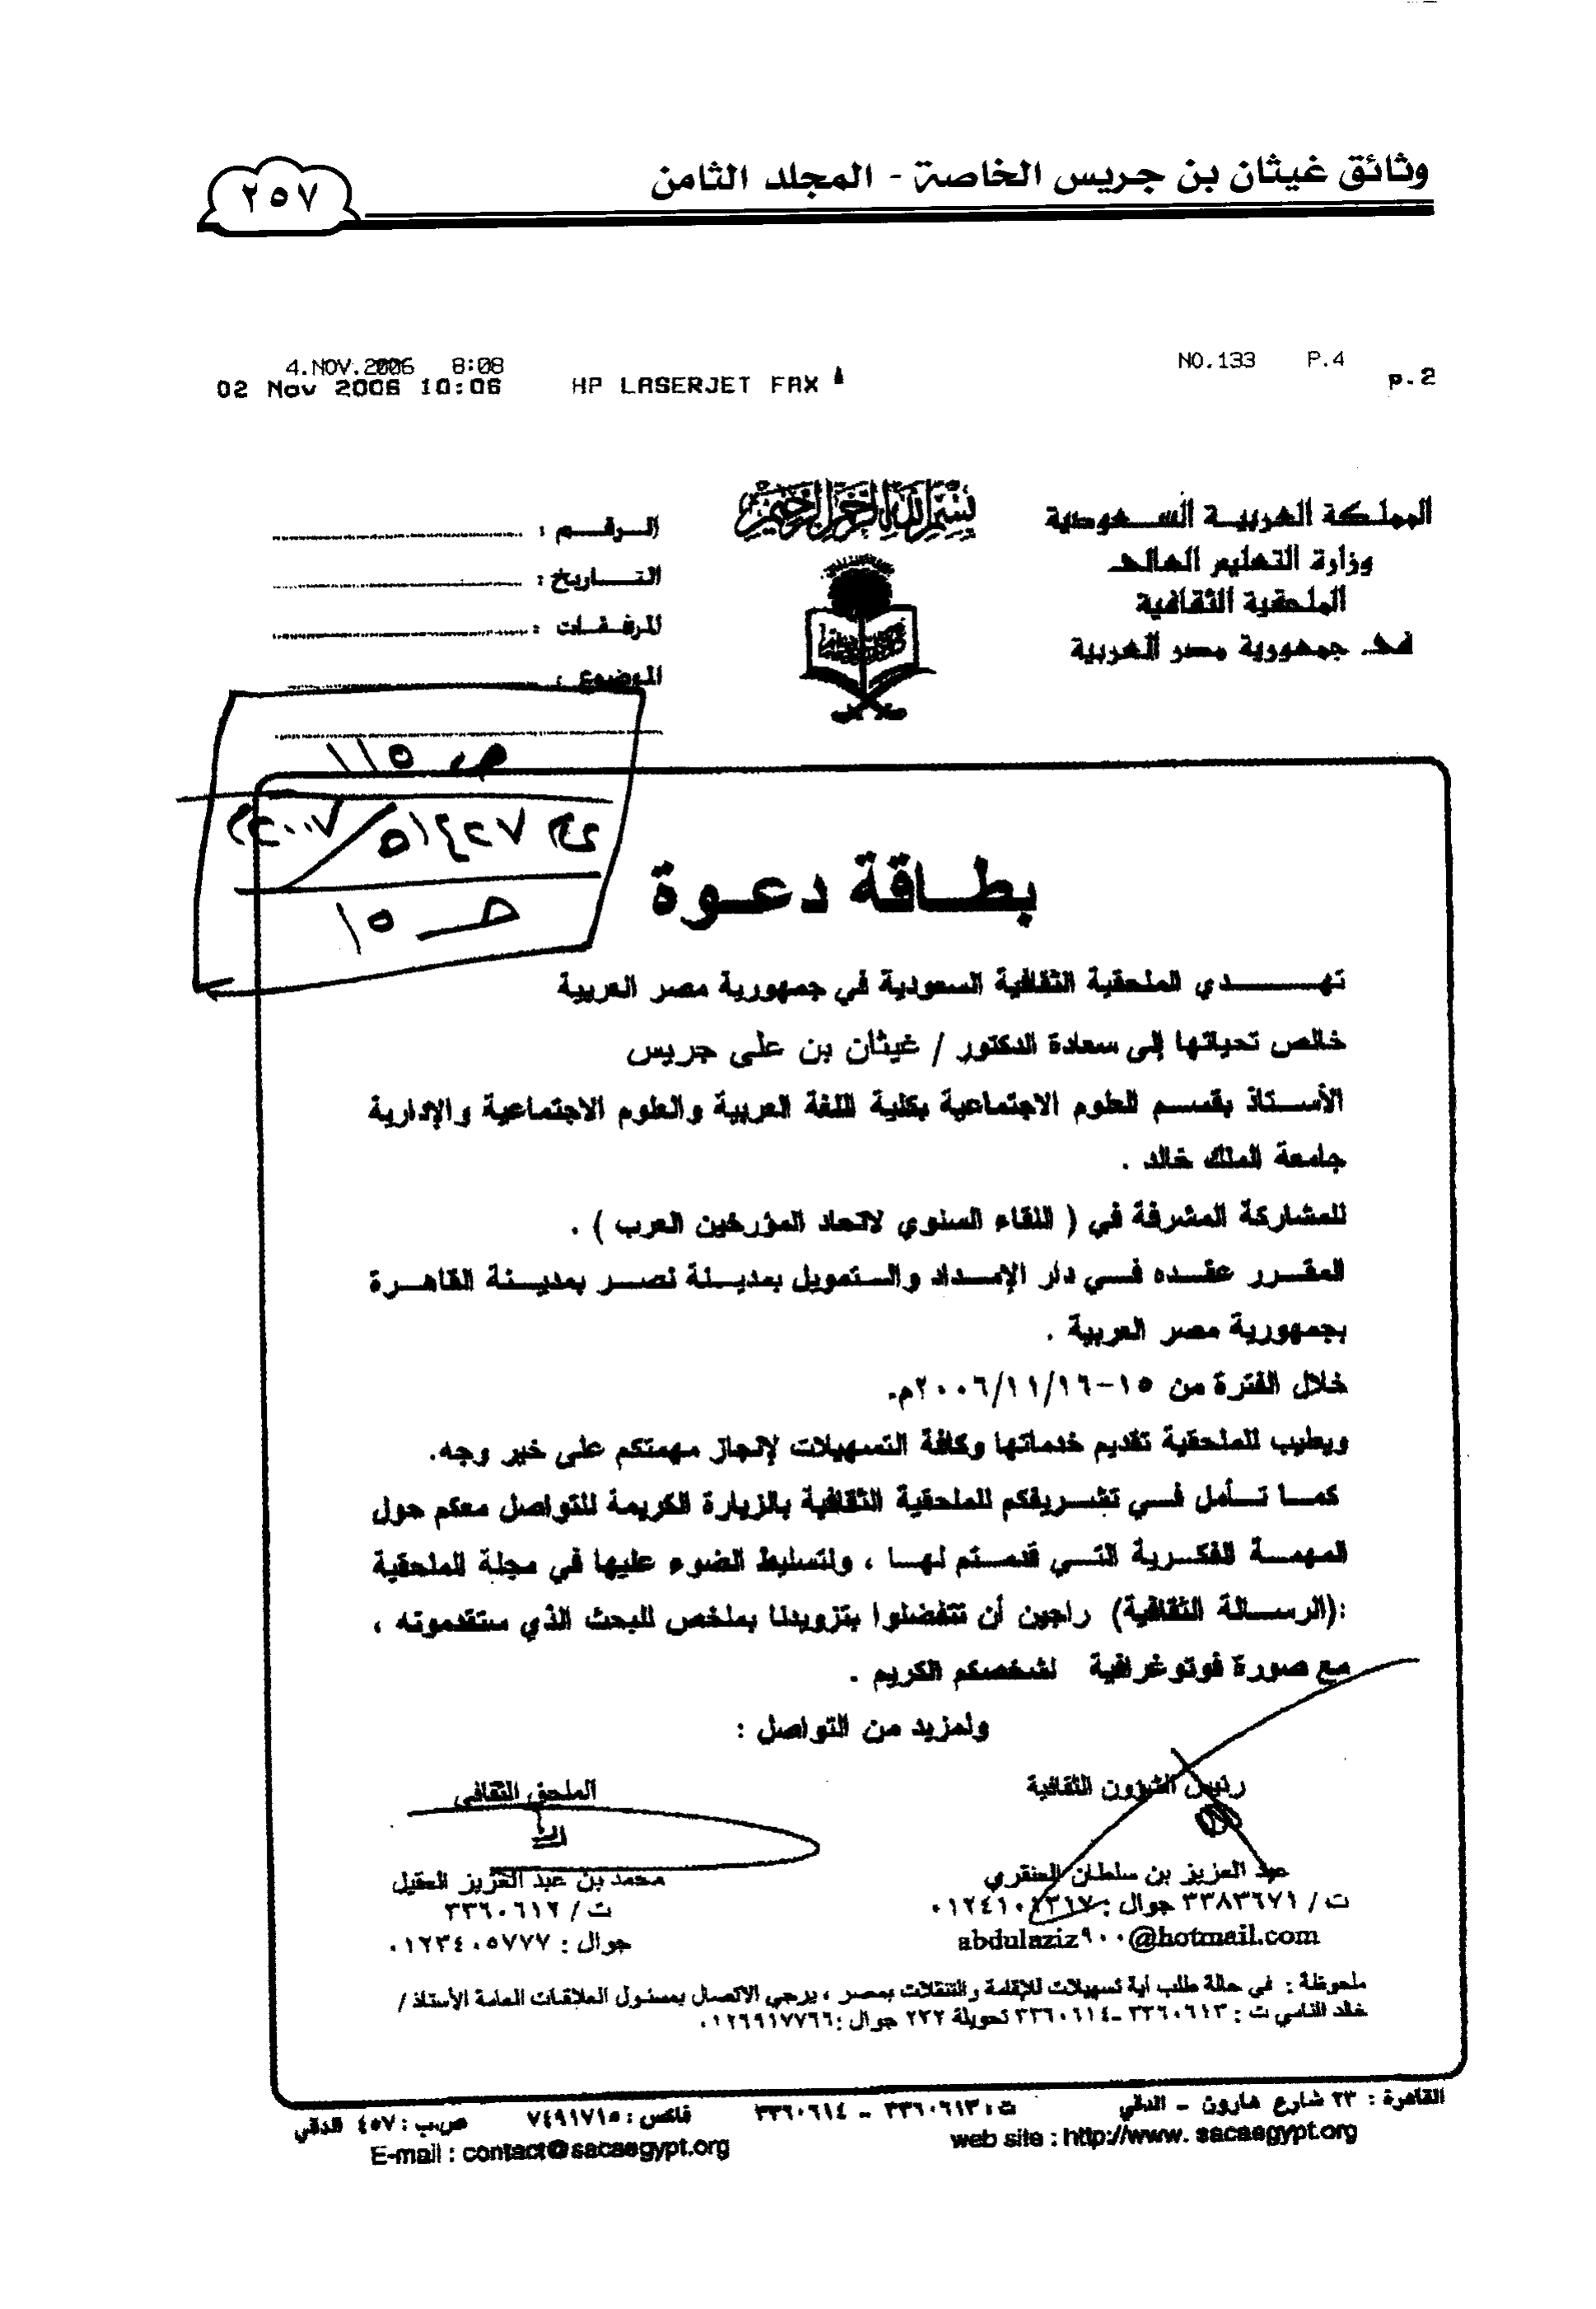 وثائق غيثان بن جريس الخاصة - المجلد الثامن
٢٥٧
4.NOV.2006 8:08 NO.133 P.4
02 Nov 2006 10:06 HP LASERJET FAX p.2
بسم الله الرحمن الرحيم
المملكة العربية السعودية
وزارة التعليم العالي
الملحقية الثقافية
في جمهورية مصر العربية
الرقم :
التاريخ :
المرفقات :
الموضوع :
ص ١١٥
ج ١٥
بطاقة دعوة
تهدي الملحقية الثقافية السعودية في جمهورية مصر العربية
خالص تحياتها إلى سعادة الدكتور / غيثان بن على جريس
الأستاذ بقسم العلوم الاجتماعية بكلية اللغة العربية والعلوم الاجتماعية والإدارية
جامعة الملك خالد .
للمشاركة المشرفة في ( اللقاء السنوي لاتحاد المؤرخين العرب ) .
المقرر عقده في دار الإمداد والتمويل بمدينة نصر بمدينة القاهرة
بجمهورية مصر العربية .
خلال الفترة من ١٥-٢٠٠٦/١١/١٦م.
ويطيب للملحقية تقديم خدماتها وكافة التسهيلات لإنجاز مهمتكم على خير وجه.
كما تأمل في تشريفكم للملحقية الثقافية بالزيارة الكريمة للتواصل معكم حول
المهمة الفكرية التي قدمتم لها ، ولتسليط الضوء عليها في مجلة الملحقية
:(الرسالة الثقافية) راجين أن تتفضلوا بتزويدنا بملخص للبحث الذي ستقدمونه ،
مع صورة فوتوغرافية لشخصكم الكريم .
ولمزيد من التواصل :
رئيس الشؤون الثقافية
عبد العزيز بن سلطان المنقري
ت / ٣٣٨٣٦٧١ جوال :
abdulaziz٩٠٠@hotmail.com
الملحق الثقافي
محمد بن عبد العزيز العقيل
ت / ٣٣٦٠٦١٢
جوال : ٠١٢٣٤٠٥٧٧٧
ملحوظة : في حالة طلب أية تسهيلات للإقامة والتنقلات بمصر ، يرجي الاتصال بمسئول العلاقات العامة الأستاذ /
خالد النامي ت : ٣٣٦٠٦١٣ -٣٣٦٠٦١٤ تحويلة ٢٣٢ جوال :٠١٢٦٩١٧٧٦٦
القاهرة : ٢٣ شارع هارون - الدقي ت : ٣٣٦٠٦١٣ - ٣٣٦٠٦١٤ فاكس : ٧٤٩١٧١٥ ص.ب : ٤٥٧ الدقي
web site : http://www. sacaegypt.org E-mail : contact@sacaegypt.org